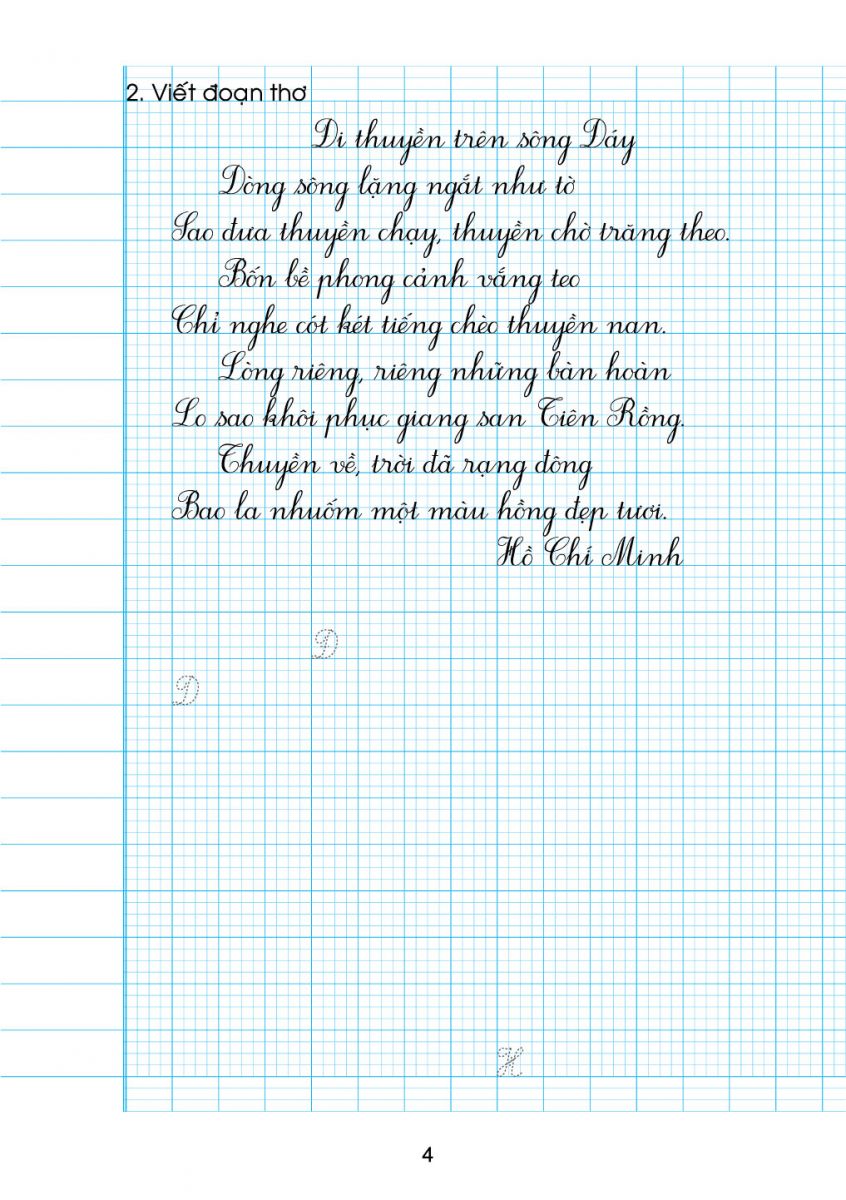 2. Viết đoạn thơ
Đi thuyền trên sông Đáy
Dòng sông lặng ngắt như tờ
Sao đưa thuyền chạy, thuyền chờ trăng theo.
Bốn bề phong cảnh vắng teo
Chỉ nghe cót két tiếng chèo thuyền nan.
Lòng riêng, riêng những bàn hoàn
Lo sao khôi phục giang san Tiên Rồng.
Thuyền về, trời đã rạng đông
Bao la nhuốm một màu hồng đẹp tươi.
Hồ Chí Minh
Đ
D
H
4